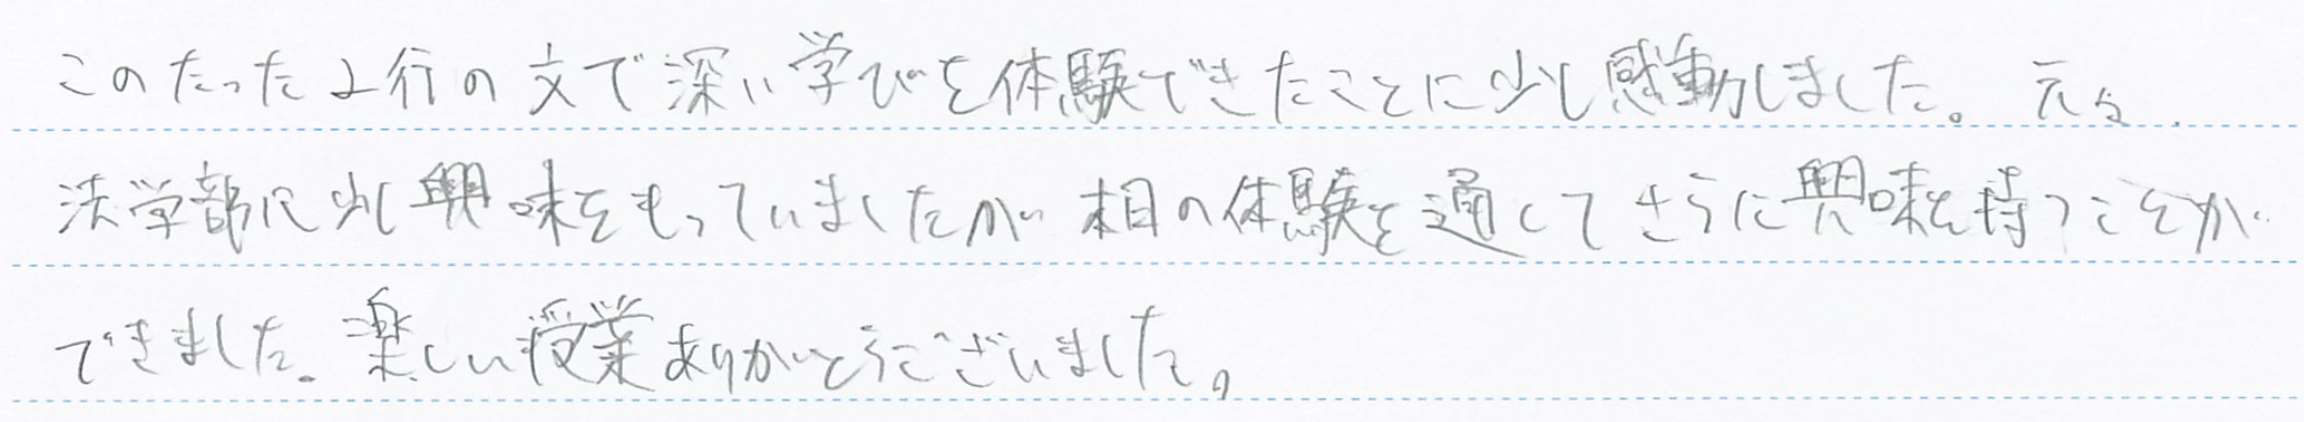 このたった2行の文で深い学びを体験できたことに少し感動しました。元々、
法学部に少し興味をもっていましたが本日の体験を通してさらに興味を持つことが
できました。楽しい授業ありがとうございました。